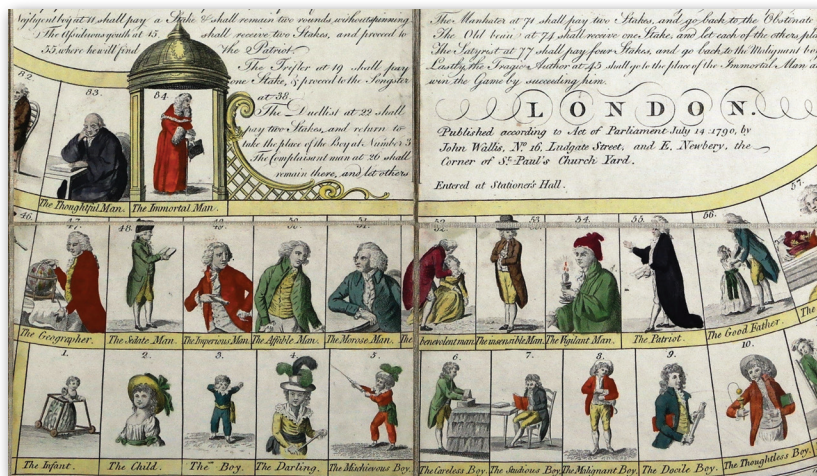 Negligent boy at 11 shall pay a Stake & shall remain two rounds without spinning
The Assiduous youth at 15 shall receive two Stakes, and proceed to
55, where he will find the Patriot.
The Trifler at 19 shall pay
one Stake, & proceed to the Songster
at 38.
The Duellist at 22 shall
pay two Stakes, and return to
take the place of the Boy at Number 3
The Complaisant man at 26 shall
remain there, and let others
The Manhater at 71 shall pay two Stakes, and go back to the Obstinate
The Old beau at 74 shall receive one Stake, and let each of the others pla
The Satyrist at 77 shall pay four Stakes, and go back to the Malignant bo
Lastly, the Tragic Author at 45 shall go to the place of the Immortal Man a
win the Game by succeeding him.
LONDON.
Published according to Act of Parliament July 14 1790, by
John Wallis, No 16, Ludgate Street, and E. Newbery, the
Corner of St Paul's Church Yard.
Entered at Stationer's Hall.
82.
83.
84.
The Thoughtful Man.
The Immortal Man.
46.
47.
48.
49.
50.
51.
52.
53.
54.
55.
56.
57.
The Geographer.
The Sedate Man.
The Imperious Man.
The Affable Man.
The Morose Man.
The benevolent man
The insensible Man.
The Vigilant Man.
The Patriot.
The Good Father.
The
1.
2.
3.
4.
5.
6.
7.
8.
9.
10.
The Infant.
The Child.
The Boy.
The Darling.
The Mischievous Boy.
The Careless Boy.
The Studious Boy.
The Malignant Boy.
The Docile Boy.
The Thoughtless Boy.